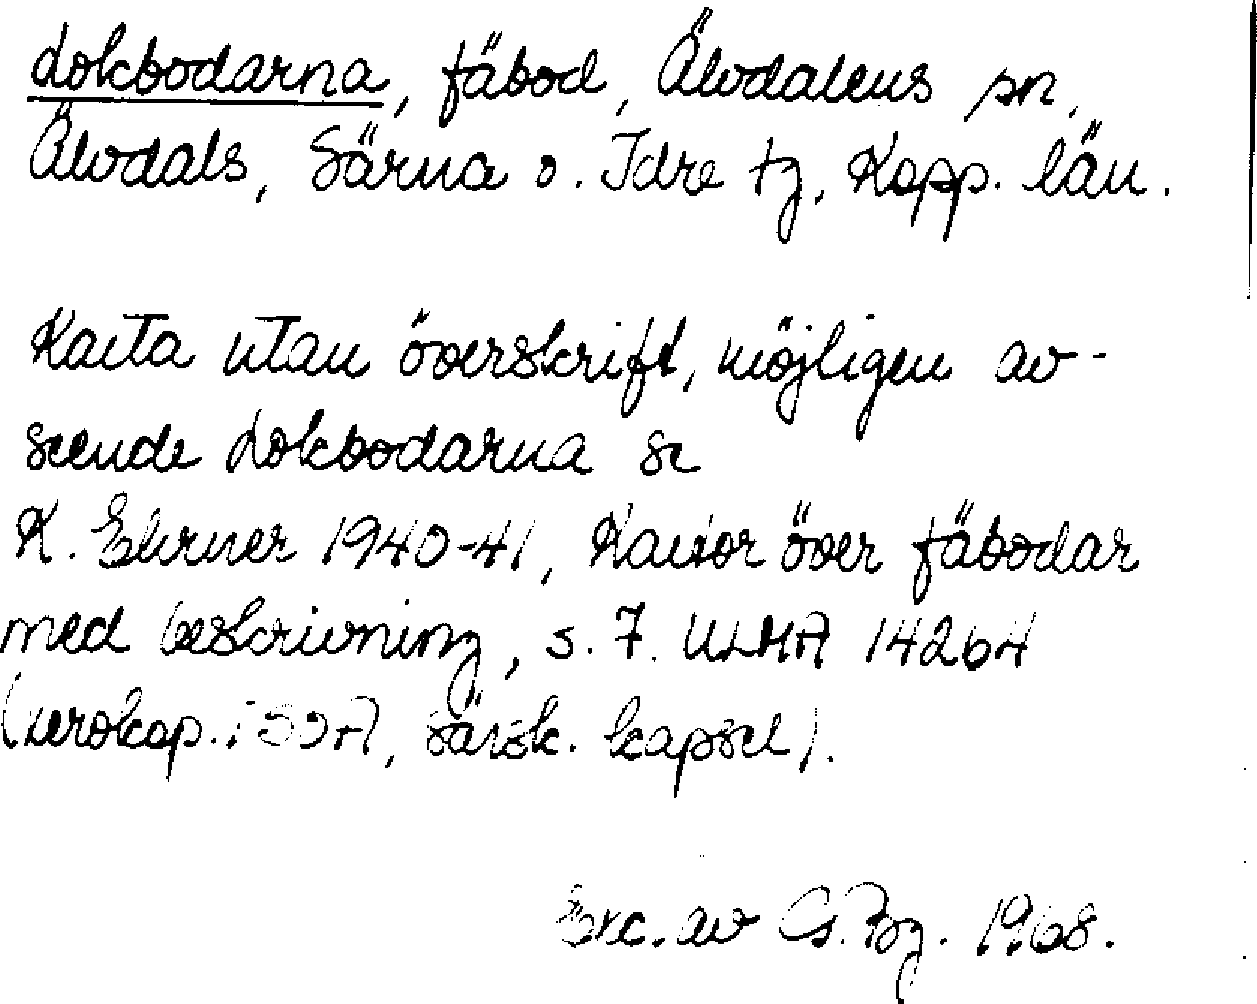 Lokbodarna, fäbod, Älvdalens sn,
Älvdals, Särna o. Idre tg, Kopp. län.
Karta utan överskrift, möjligen av-
seende Lokbodarna se
K. Ehrner 1940-41, Kartor över fäbodar
med beskrivning, s. 7. ULMA 14264
(xerokop. i SOA, särsk. kapsel).
Exc. av G. Bg. 1968.